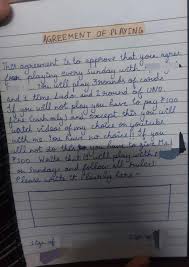 AGREEMENT OF PLAYING
This agreement is to approve that you agree
from playing every sunday with
You will play 3 rounds of cards
and 1 time ludo and 2 round of UNO.
If you will not play you have to pay ₹100
(In cash only) and except this you will
watch videos of my choice on youtube
with me. You have no choice!! If you
will not do this you have to give
₹500. Write that I will play with
on Sundays and follow all rules!
Please write it clearly here -
Sign of
Sign of